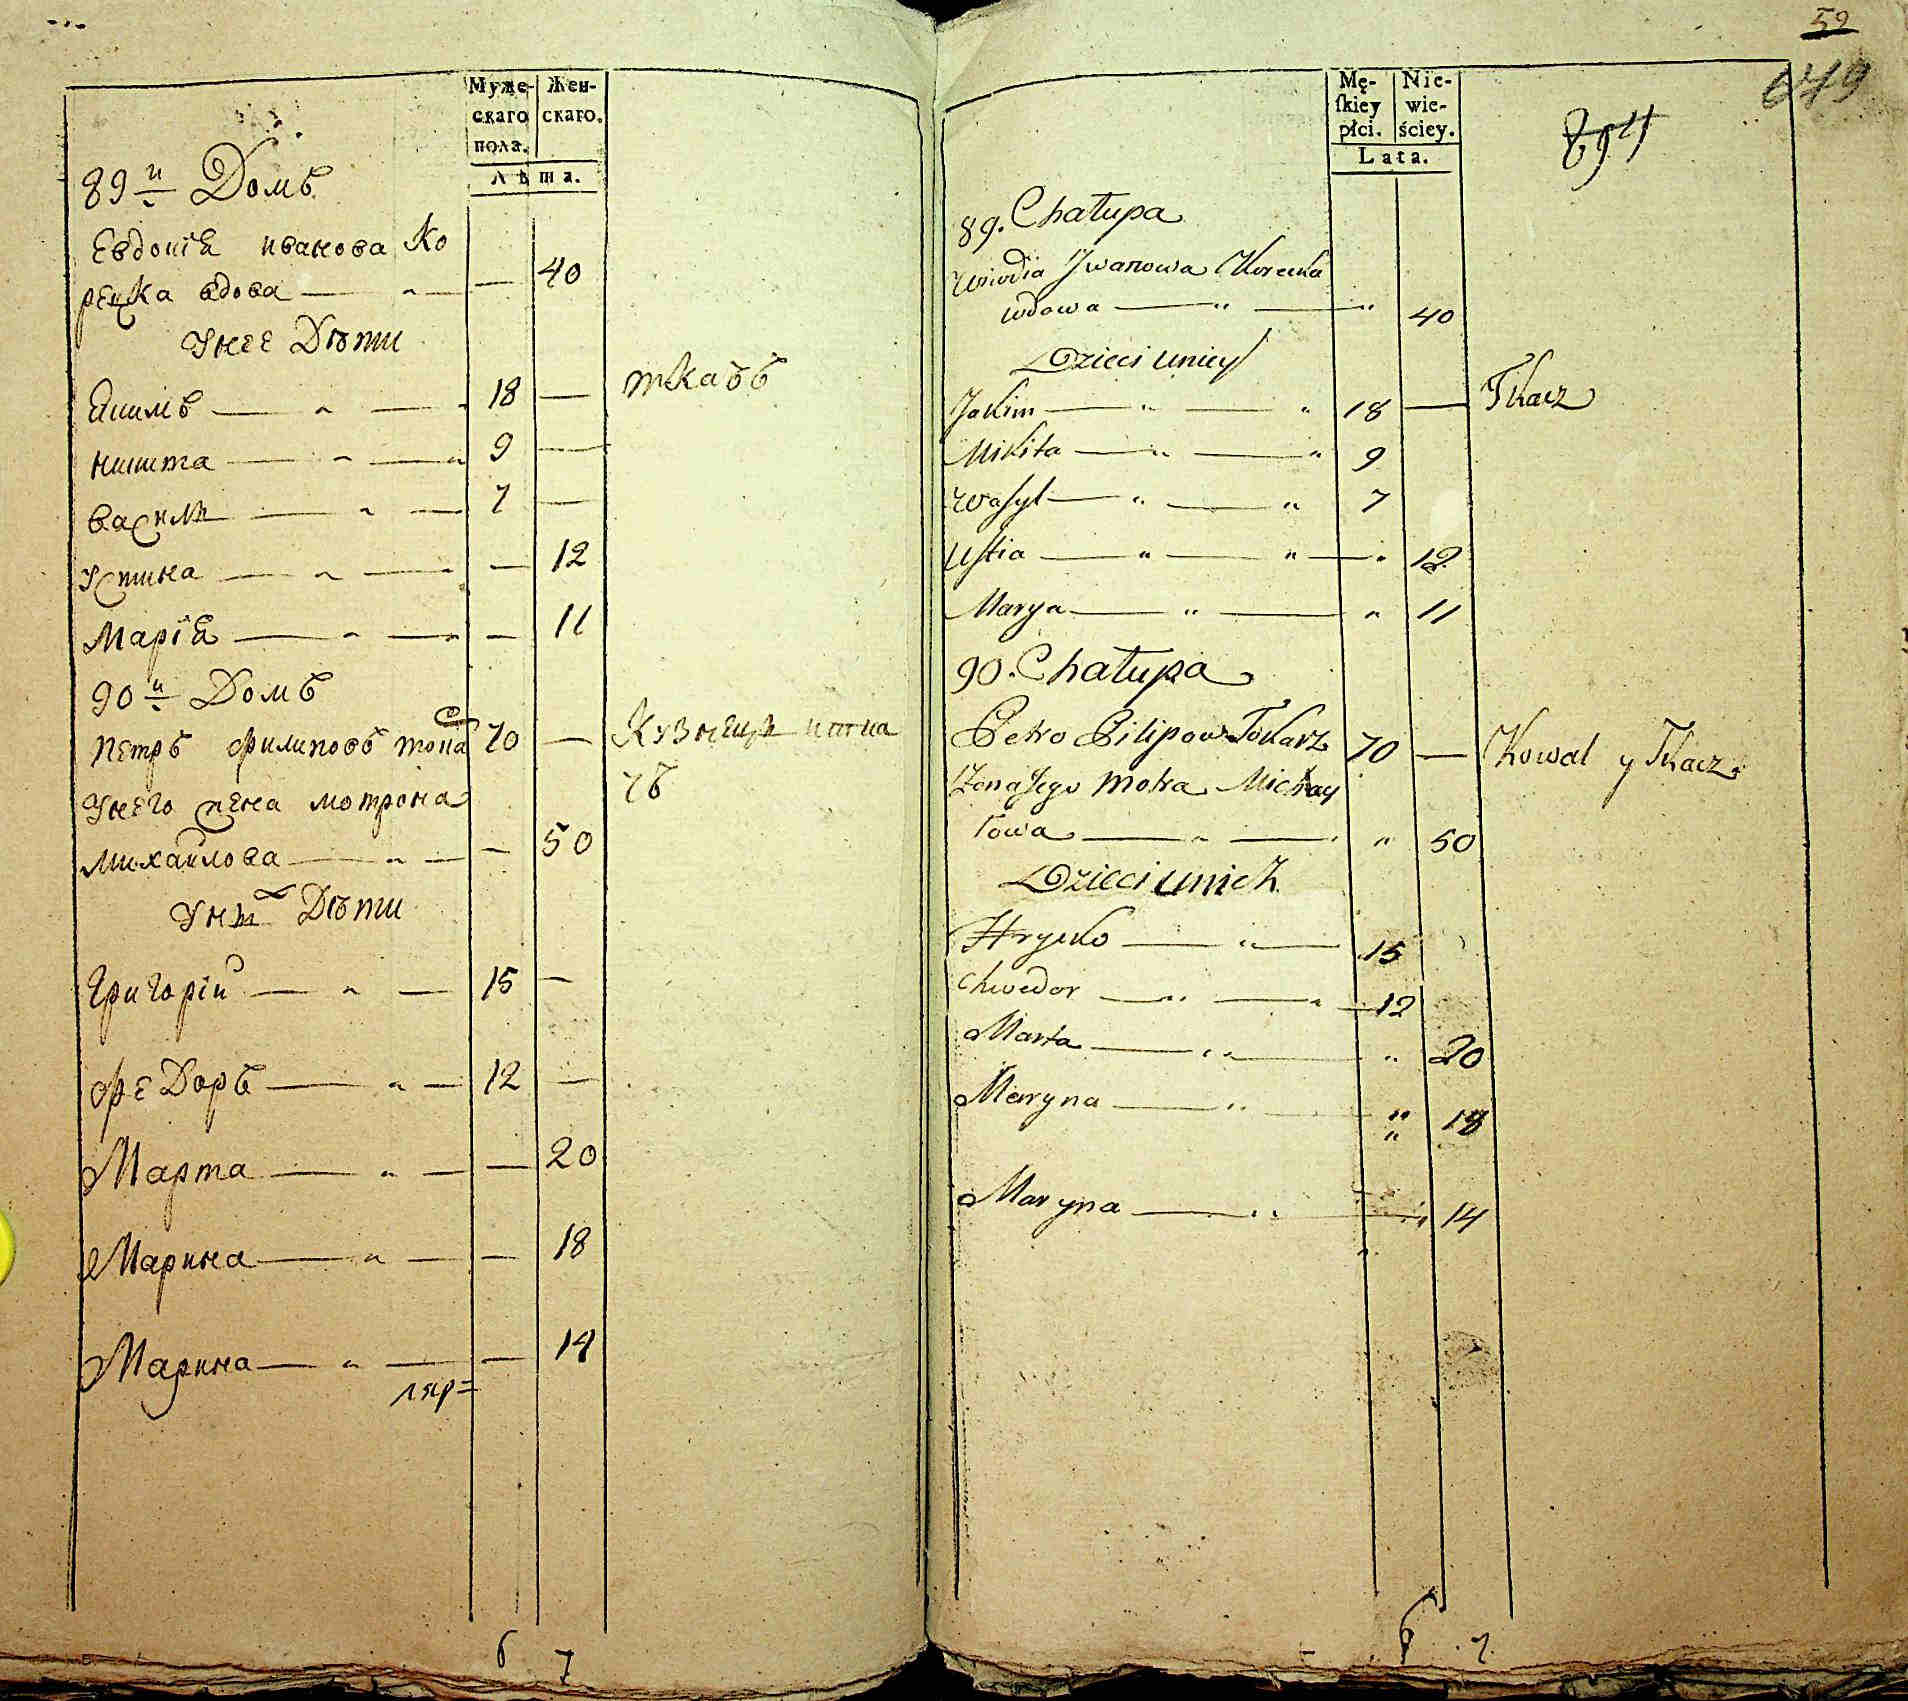 Муже-
скаго
пола.
Жен-
скаго.
Лѣта.
89й Домъ
Евдокія иванова Ко
рецка вдова — „ — — 40
Унее Дѣти
Якимъ — „ — 18 — ткачъ
никита — „ — 9 —
васили — „ — 7 —
Устина — „ — — 12
Марія — „ — — 11
90й Домъ
Петръ филиповъ тока 70 — Кузнецъ и тка
чъ
Унего жена мотрона
михайлова — „ — — 50
Унихъ Дѣти
Григорій — „ — 15 —
фе Доръ — „ — 12 —
Марта — „ — — 20
Марина — „ — — 18
Марина — „ — — 14
6 7
59
649
894
Mę-
ſkiey
płci.
Nie-
wie-
ściey.
Lata.
89. Chałupa
Iwanowa Korecka
wdowa — „ — „ 40
Dzieci uniey
Jakim — „ — „ 18 — Tkacz
Mikita — „ — „ 9
Waſyl — „ — „ 7
Uſtia — „ — „ — „ 12
Marya — „ — „ 11
90. Chałupa
Petro Pilipow Tokarz 70 — Kowal y Tkacz
Zona Jego Motra Michay
łowa — „ — „ 50
Dzieci unich
Hrycko — „ — 15
Chwedor — „ — „ — 12
Marta — „ — „ 20
Maryna — „ — „ 18
„
Maryna — „ — „ 14
6 7